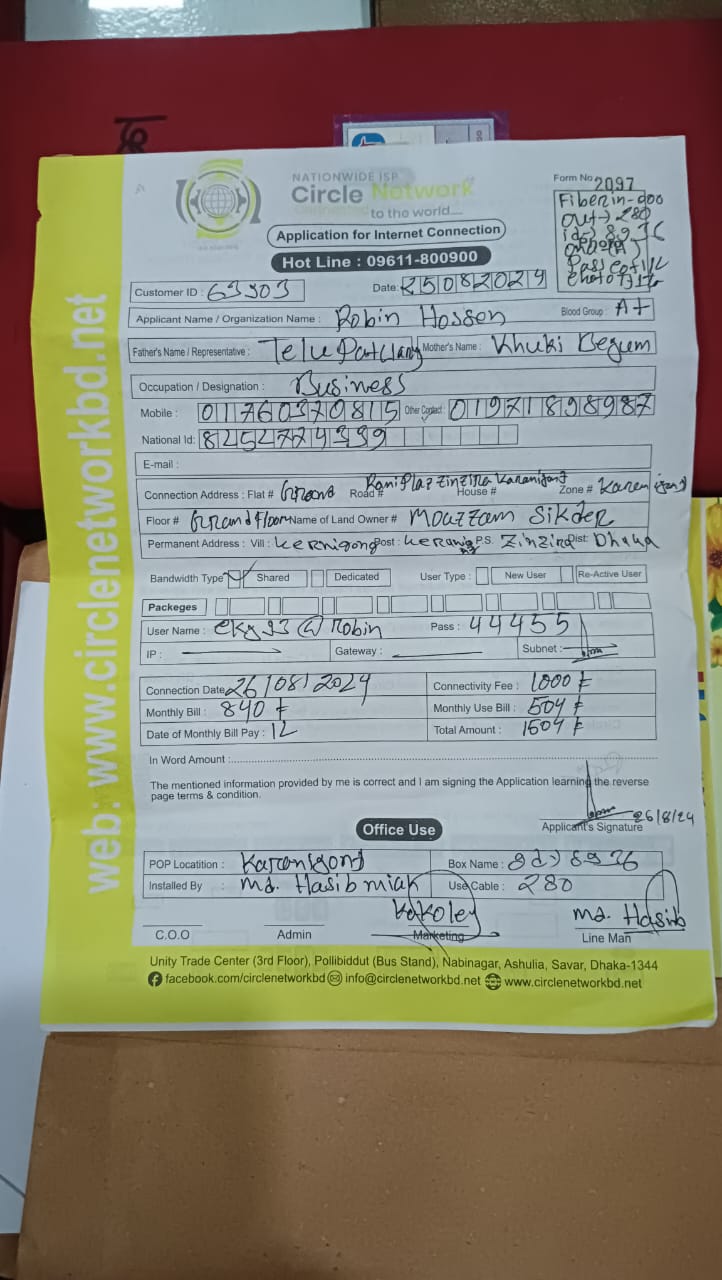 NATIONWIDE ISP
Circle Network
Connected to the world....
Application for Internet Connection
Hot Line : 09611-800900
Form No 2097
Fiber in-900
out-> 280
Customer ID : 63303
Date: 25082024
Applicant Name / Organization Name : Robin Hossen Blood Group : A+
Father's Name / Representative : Telu Mother's Name : Khuki Begum
Occupation / Designation : Business
Mobile : 01760370815 Other Contact : 01971898987
National Id: 8254774399
E-mail :
Connection Address : Flat # Road # Rani Plaz Zinzira Karanigonj House # Zone #
Floor # Grand Floor Name of Land Owner # Moazzam Sikder
Permanent Address : Vill : Kernigong Post : P.S. Zinzira Dist: Dhaka
Bandwidth Type Shared Dedicated User Type : New User Re-Active User
Packeges
User Name : @ Robin Pass : 44455
IP : Gateway : Subnet :
Connection Date 26/08/2024 Connectivity Fee : 1000 ₺
Monthly Bill : 840 ₺ Monthly Use Bill : 504 ₺
Date of Monthly Bill Pay : 12 Total Amount : 1504 ₺
In Word Amount :
The mentioned information provided by me is correct and I am signing the Application learning the reverse
page terms & condition.
26/8/24
Applicant's Signature
Office Use
POP Locatition : Karanigong Box Name : 8936
Installed By : Md. Hasib miah Use Cable : 280
Kakoley Md. Hasib
C.O.O Admin Marketing Line Man
Unity Trade Center (3rd Floor), Pollibiddut (Bus Stand), Nabinagar, Ashulia, Savar, Dhaka-1344
facebook.com/circlenetworkbd info@circlenetworkbd.net www.circlenetworkbd.net
web: www.circlenetworkbd.net